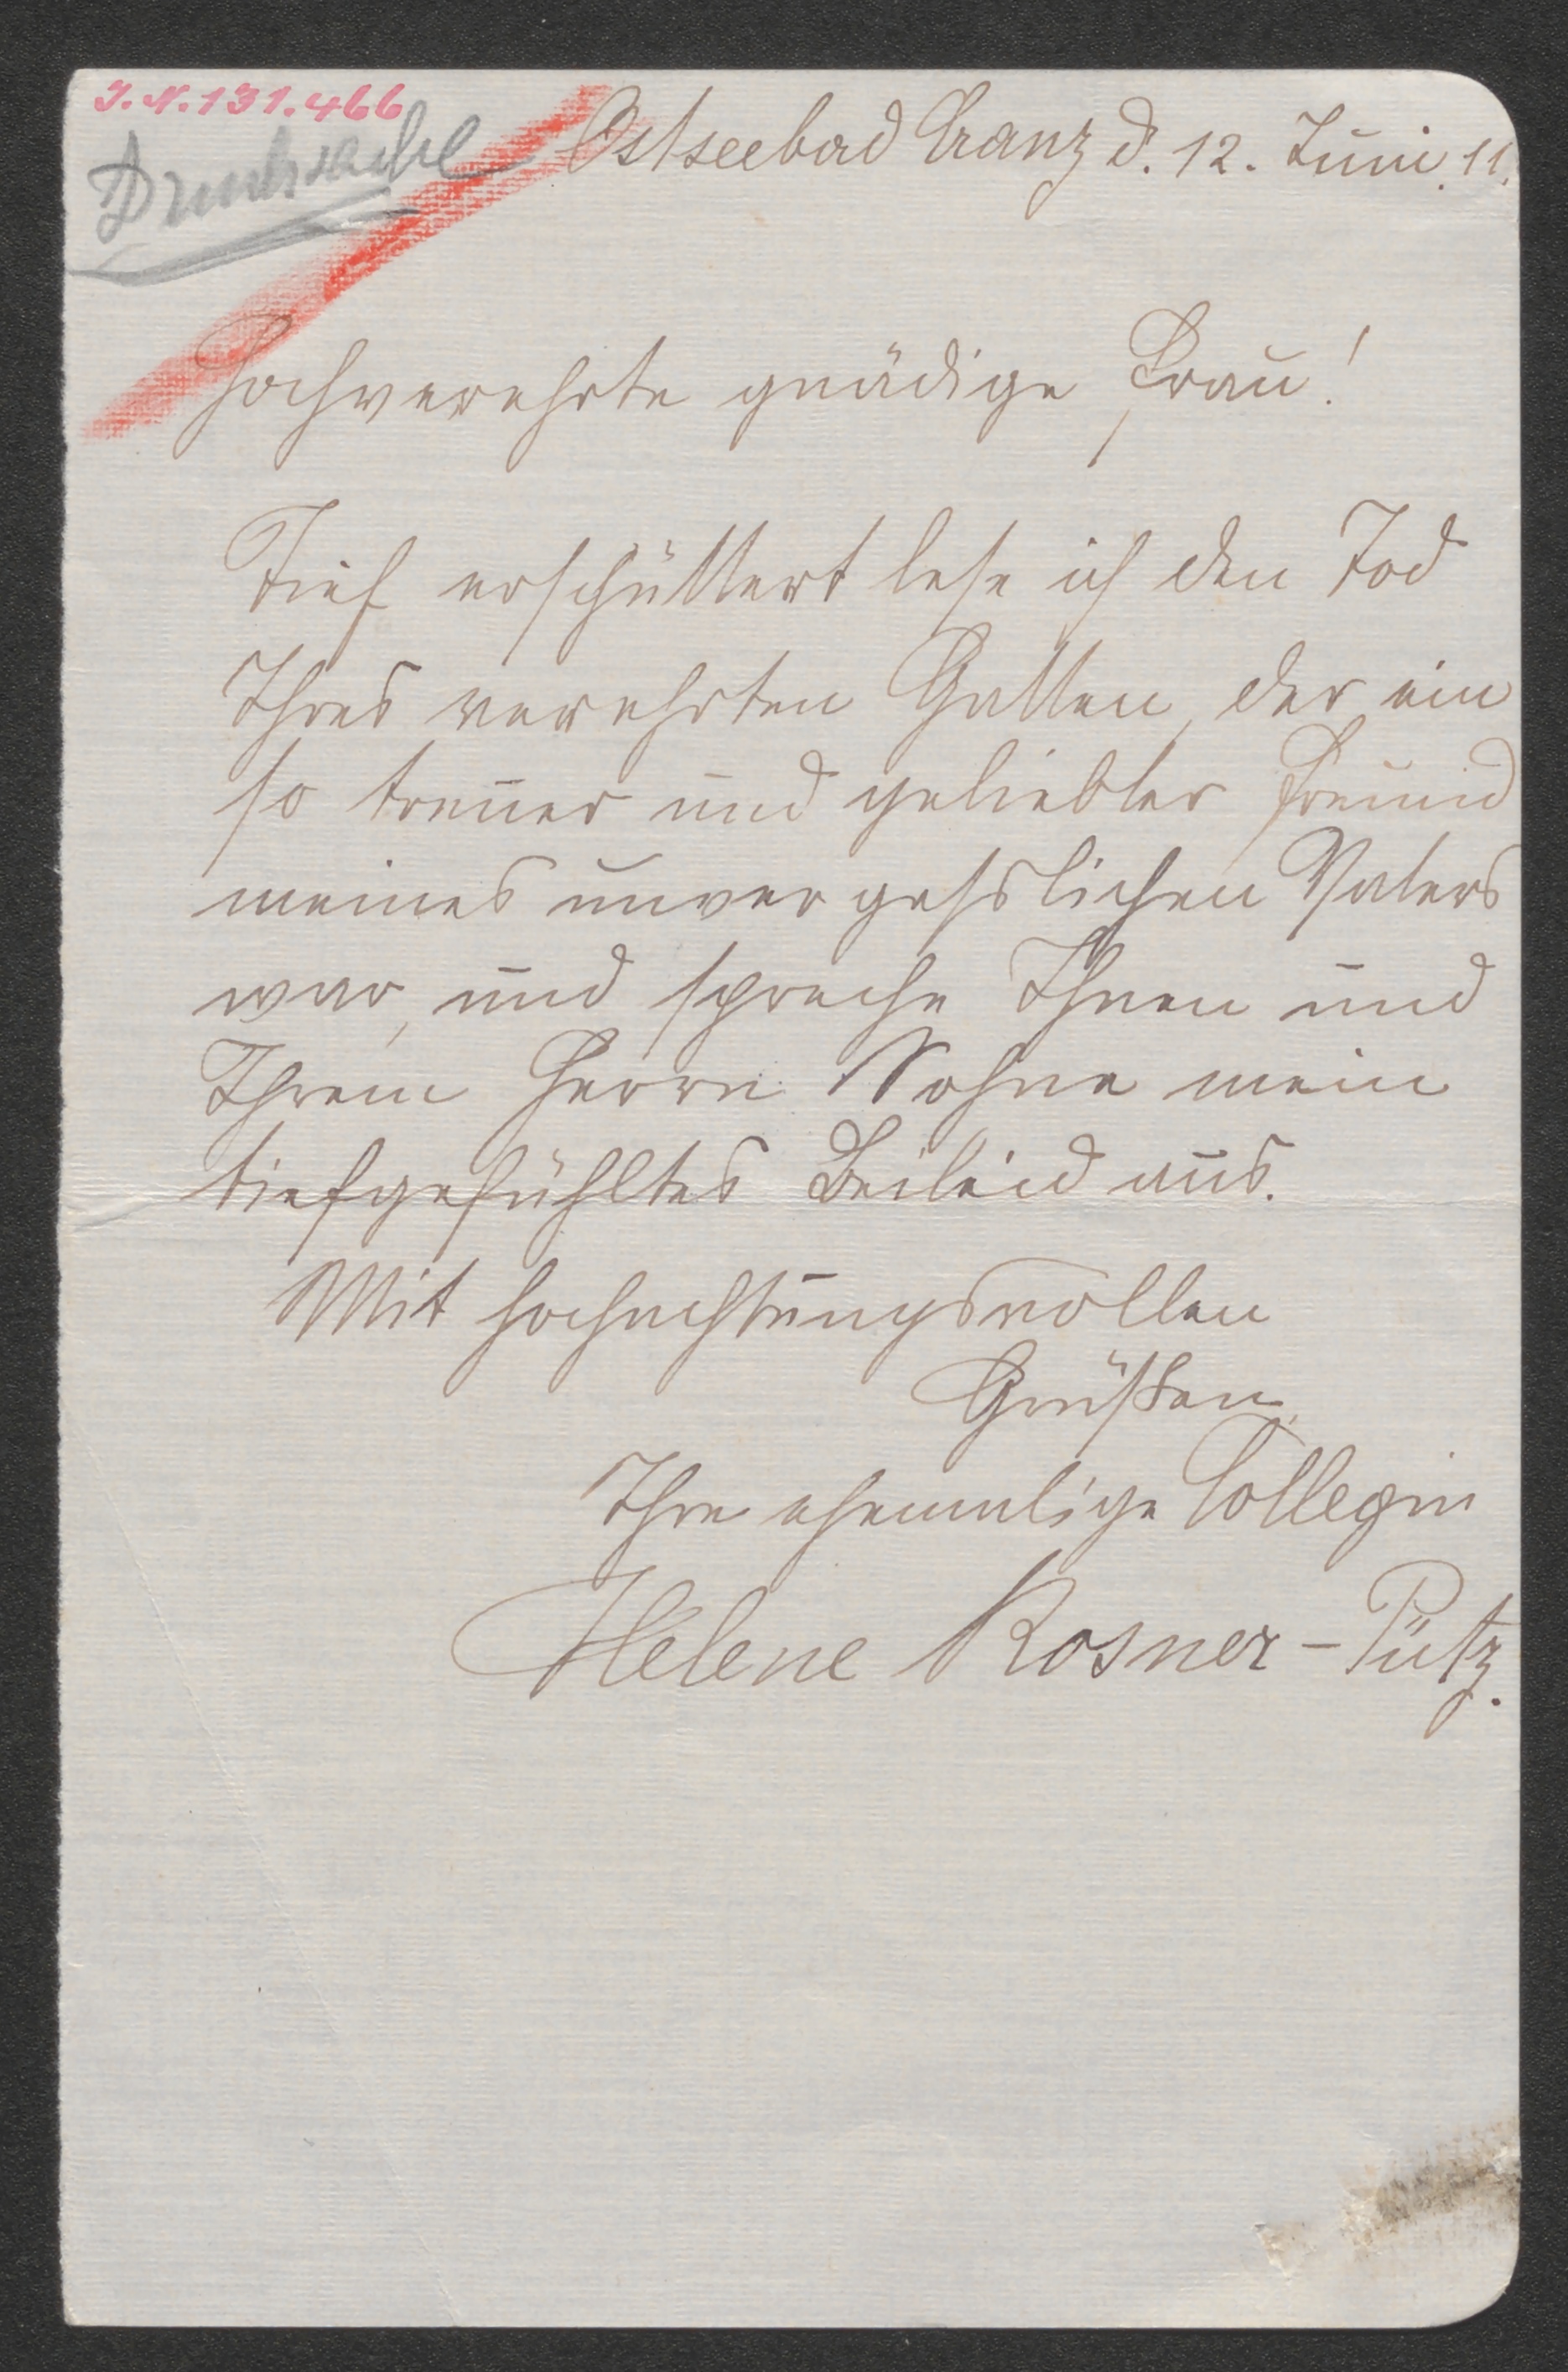 I.N.131.466
Drucksache
Ostseebad Cranz d. 12. Juni. 11.
Hochverehrte gnädige Frau!
Tief erschüttert lese ich den Tod
Ihres verehrten Gatten, der ein
so treuer und geliebter Freund
meines unvergesslichen Vaters
war, und spreche Ihnen und
Ihrem Herrn Sohne mein
tiefgefühltes Beileid aus.
Mit hochachtungsvollen
Grüßen
Ihre ehemalige Collegin
Helene Rosner-Pütz.